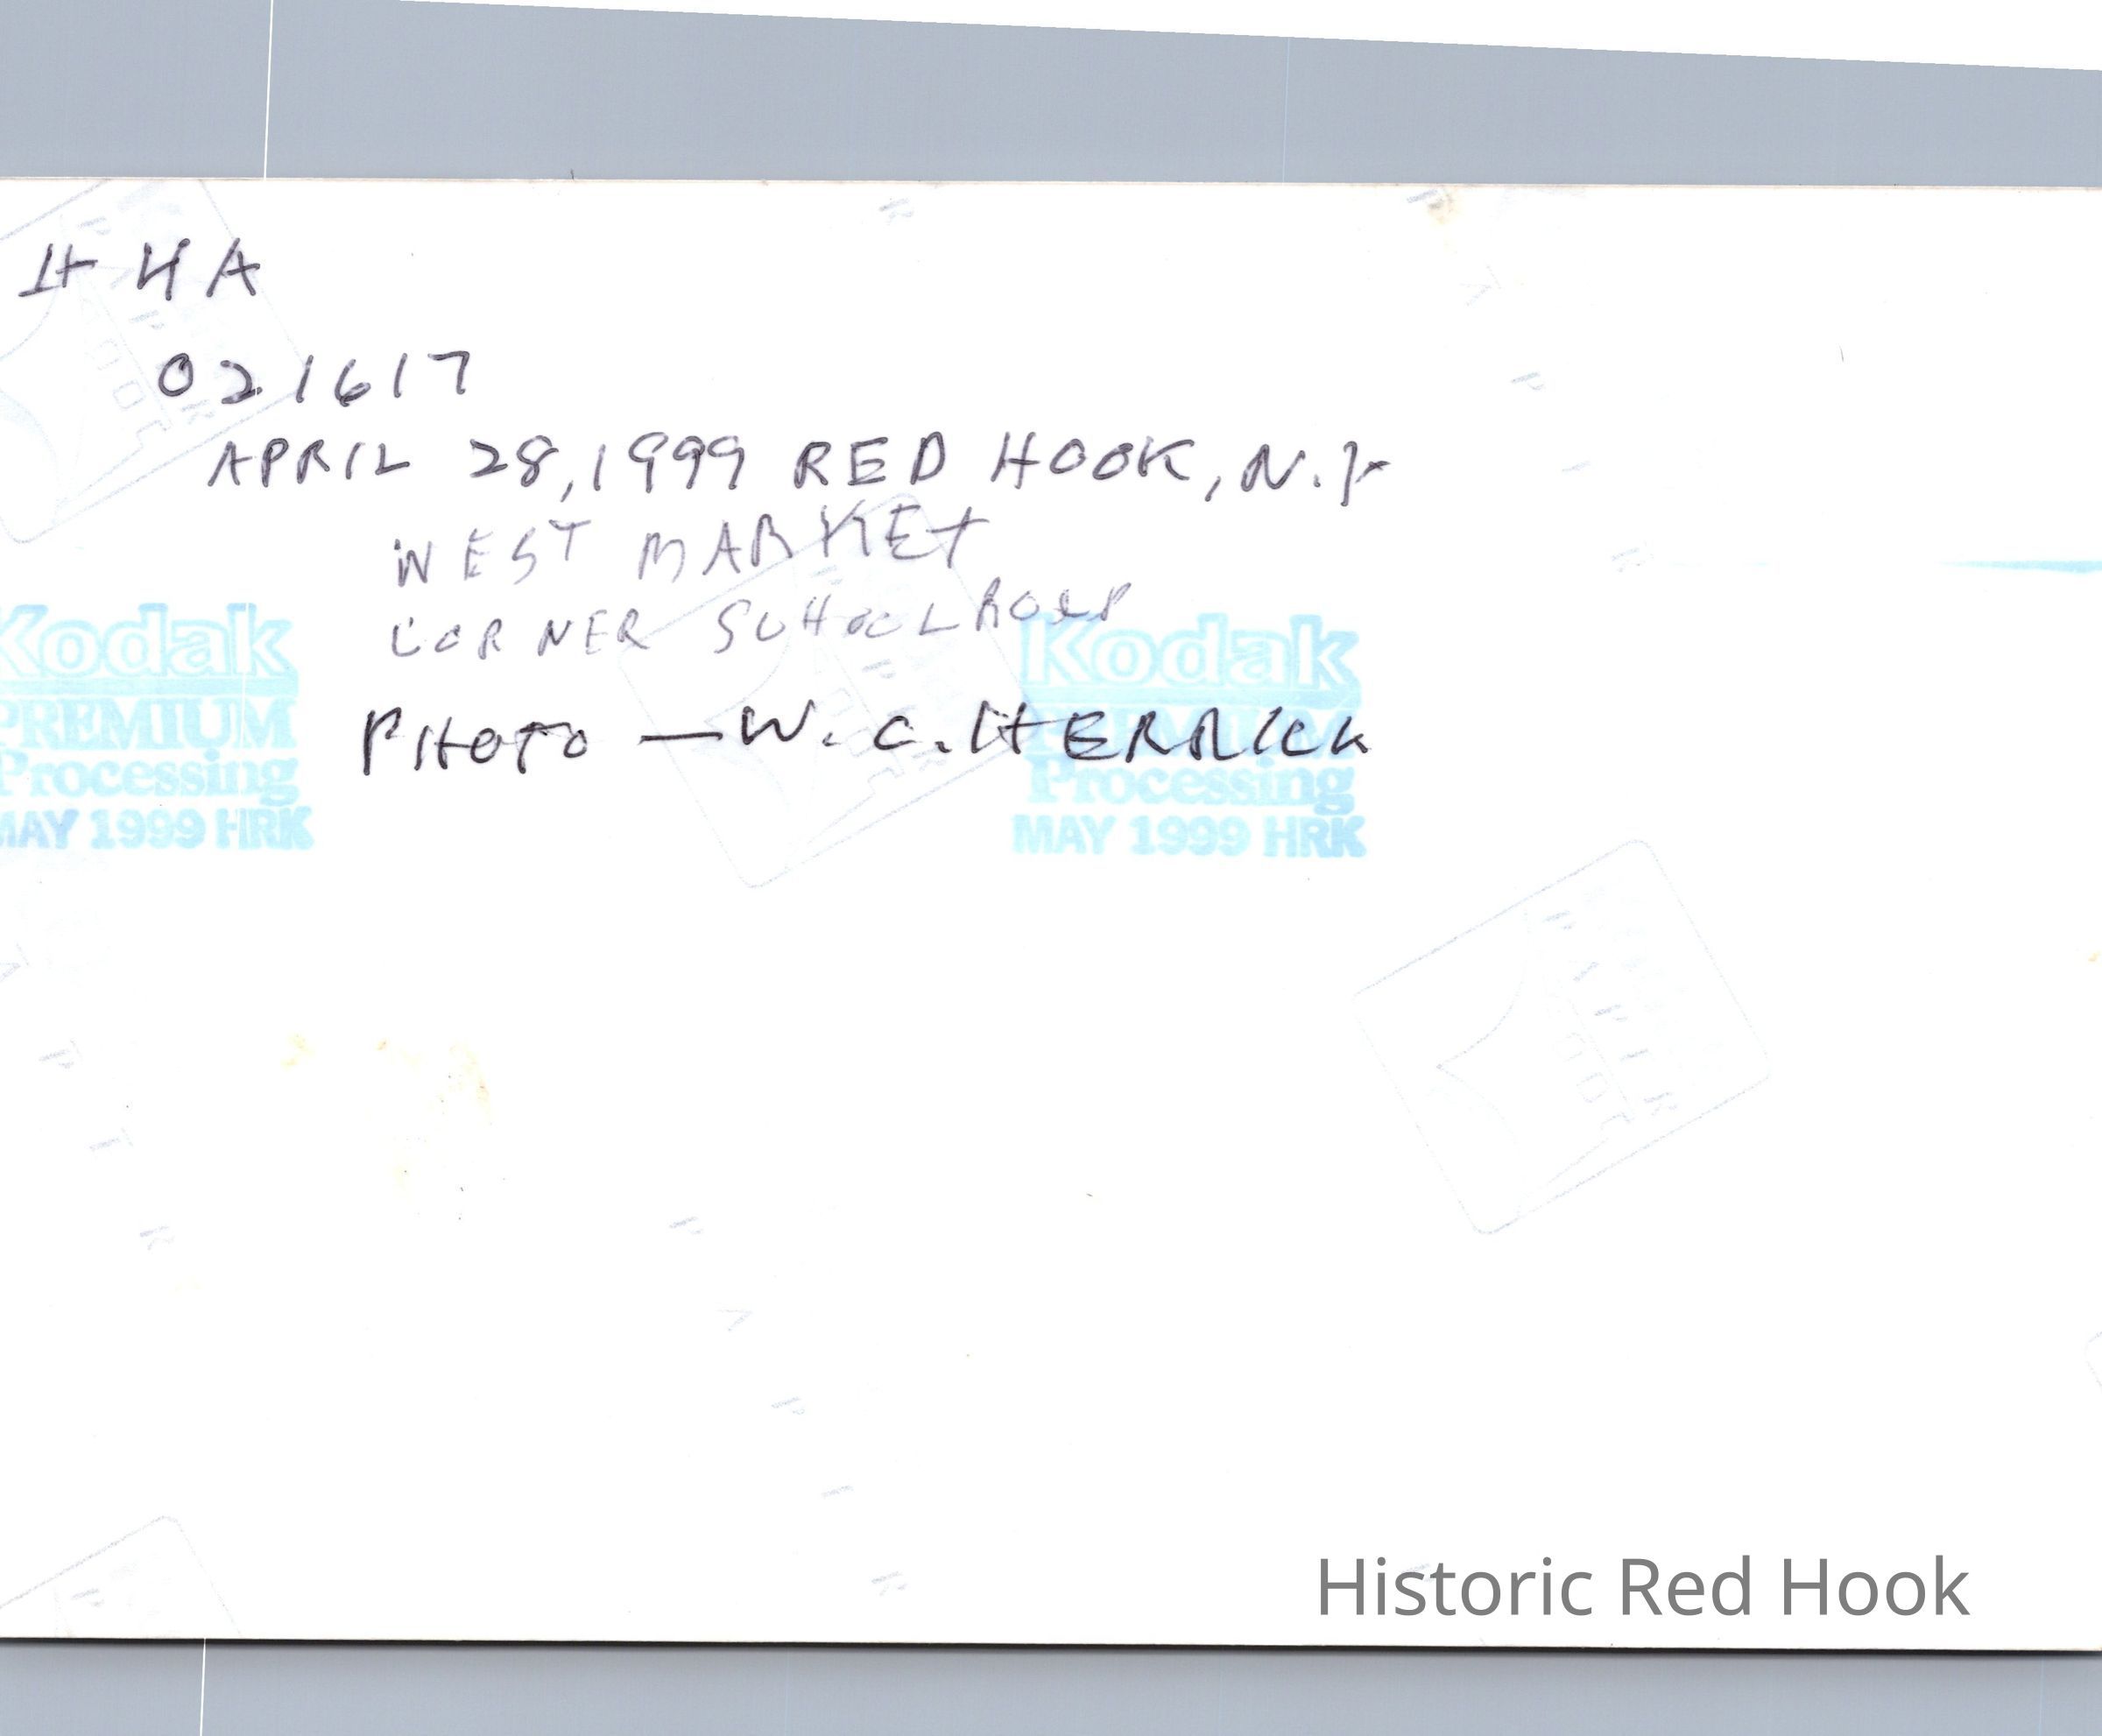 HHA
021617
APRIL 28, 1999 RED HOOK, N.Y
WEST MARKET
CORNER SCHOOLHOUSE
PHOTO — W. C. HERRICK
Kodak
PREMIUM
Processing
MAY 1999 HRK
Kodak
PREMIUM
Processing
MAY 1999 HRK
Historic Red Hook